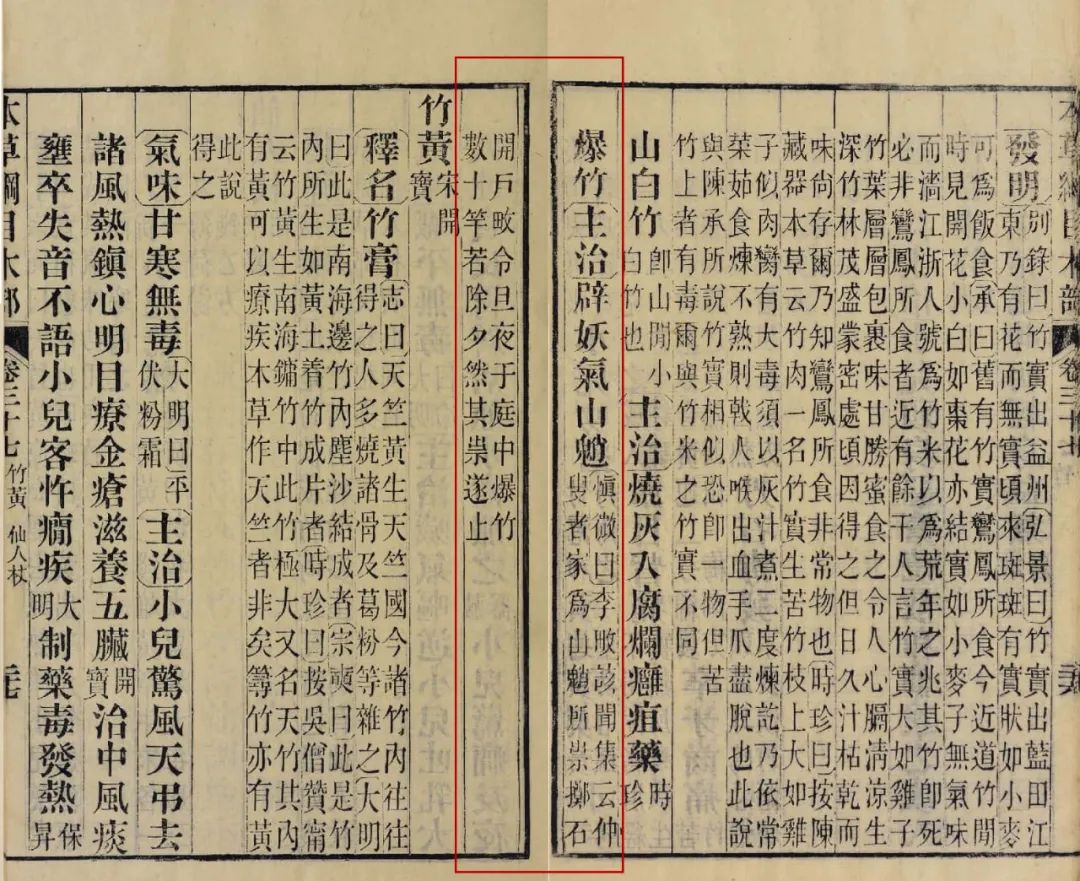 本草綱目木部 卷三十七
發明 別錄曰竹實出益州弘景曰竹實出藍田江
東乃有花而無實頃來斑斑有實狀如小麥
可爲飯食承曰舊有竹實鸞鳳所食今近道竹間
時見開花小白如棗花亦結實如小麥子無氣味
而澁江浙人號爲竹米以爲荒年之兆其竹卽死
必非鸞鳳所食者近有餘干人言竹實大如雞子
竹葉層層包裹味甘勝蜜食之令人心膈清涼生
深竹林茂盛蒙密處頃因得之但日久汁枯乾而
味尚存爾乃知鸞鳳所食非常物也時珍曰按陳
藏器本草云竹肉一名竹實生苦竹枝上大如雞
子似肉臠有大毒須以灰汁煮二度煉訖乃依常
菜茹食煉不熟則戟人喉出血手爪盡脫也此說
與陳承所說竹實相似恐卽一物但苦
竹上者有毒爾與竹米之竹實不同
山白竹 卽山間小白竹也 主治燒灰入腐爛癰疽藥 時珍
爆竹主治辟妖氣山魈 慎微曰李畋該聞集云仲
叟者家爲山魈所祟擲石
開戶畋令旦夜于庭中爆竹
數十竿若除夕然其祟遂止
竹黃 宋開寶
釋名竹膏 志曰天竺黃生天竺國今諸竹內往往
得之人多燒諸骨及葛粉等雜之大明
曰此是南海邊竹內塵沙結成者宗奭曰此是竹
內所生如黃土着竹成片者時珍曰按吳僧贊甯
云竹黃生南海鏞竹中此竹極大又名天竹其內
有黃可以療疾本草作天竺者非矣䈽竹亦有黃
此說
得之
氣味甘寒無毒 大明曰平伏粉霜 主治小兒驚風天弔去
諸風熱鎮心明目療金瘡滋養五臟 開寶 治中風痰
壅卒失音不語小兒客忤癇疾 大明 制藥毒發熱 保昇
本草綱目木部 卷三十七 竹黃 仙人杖